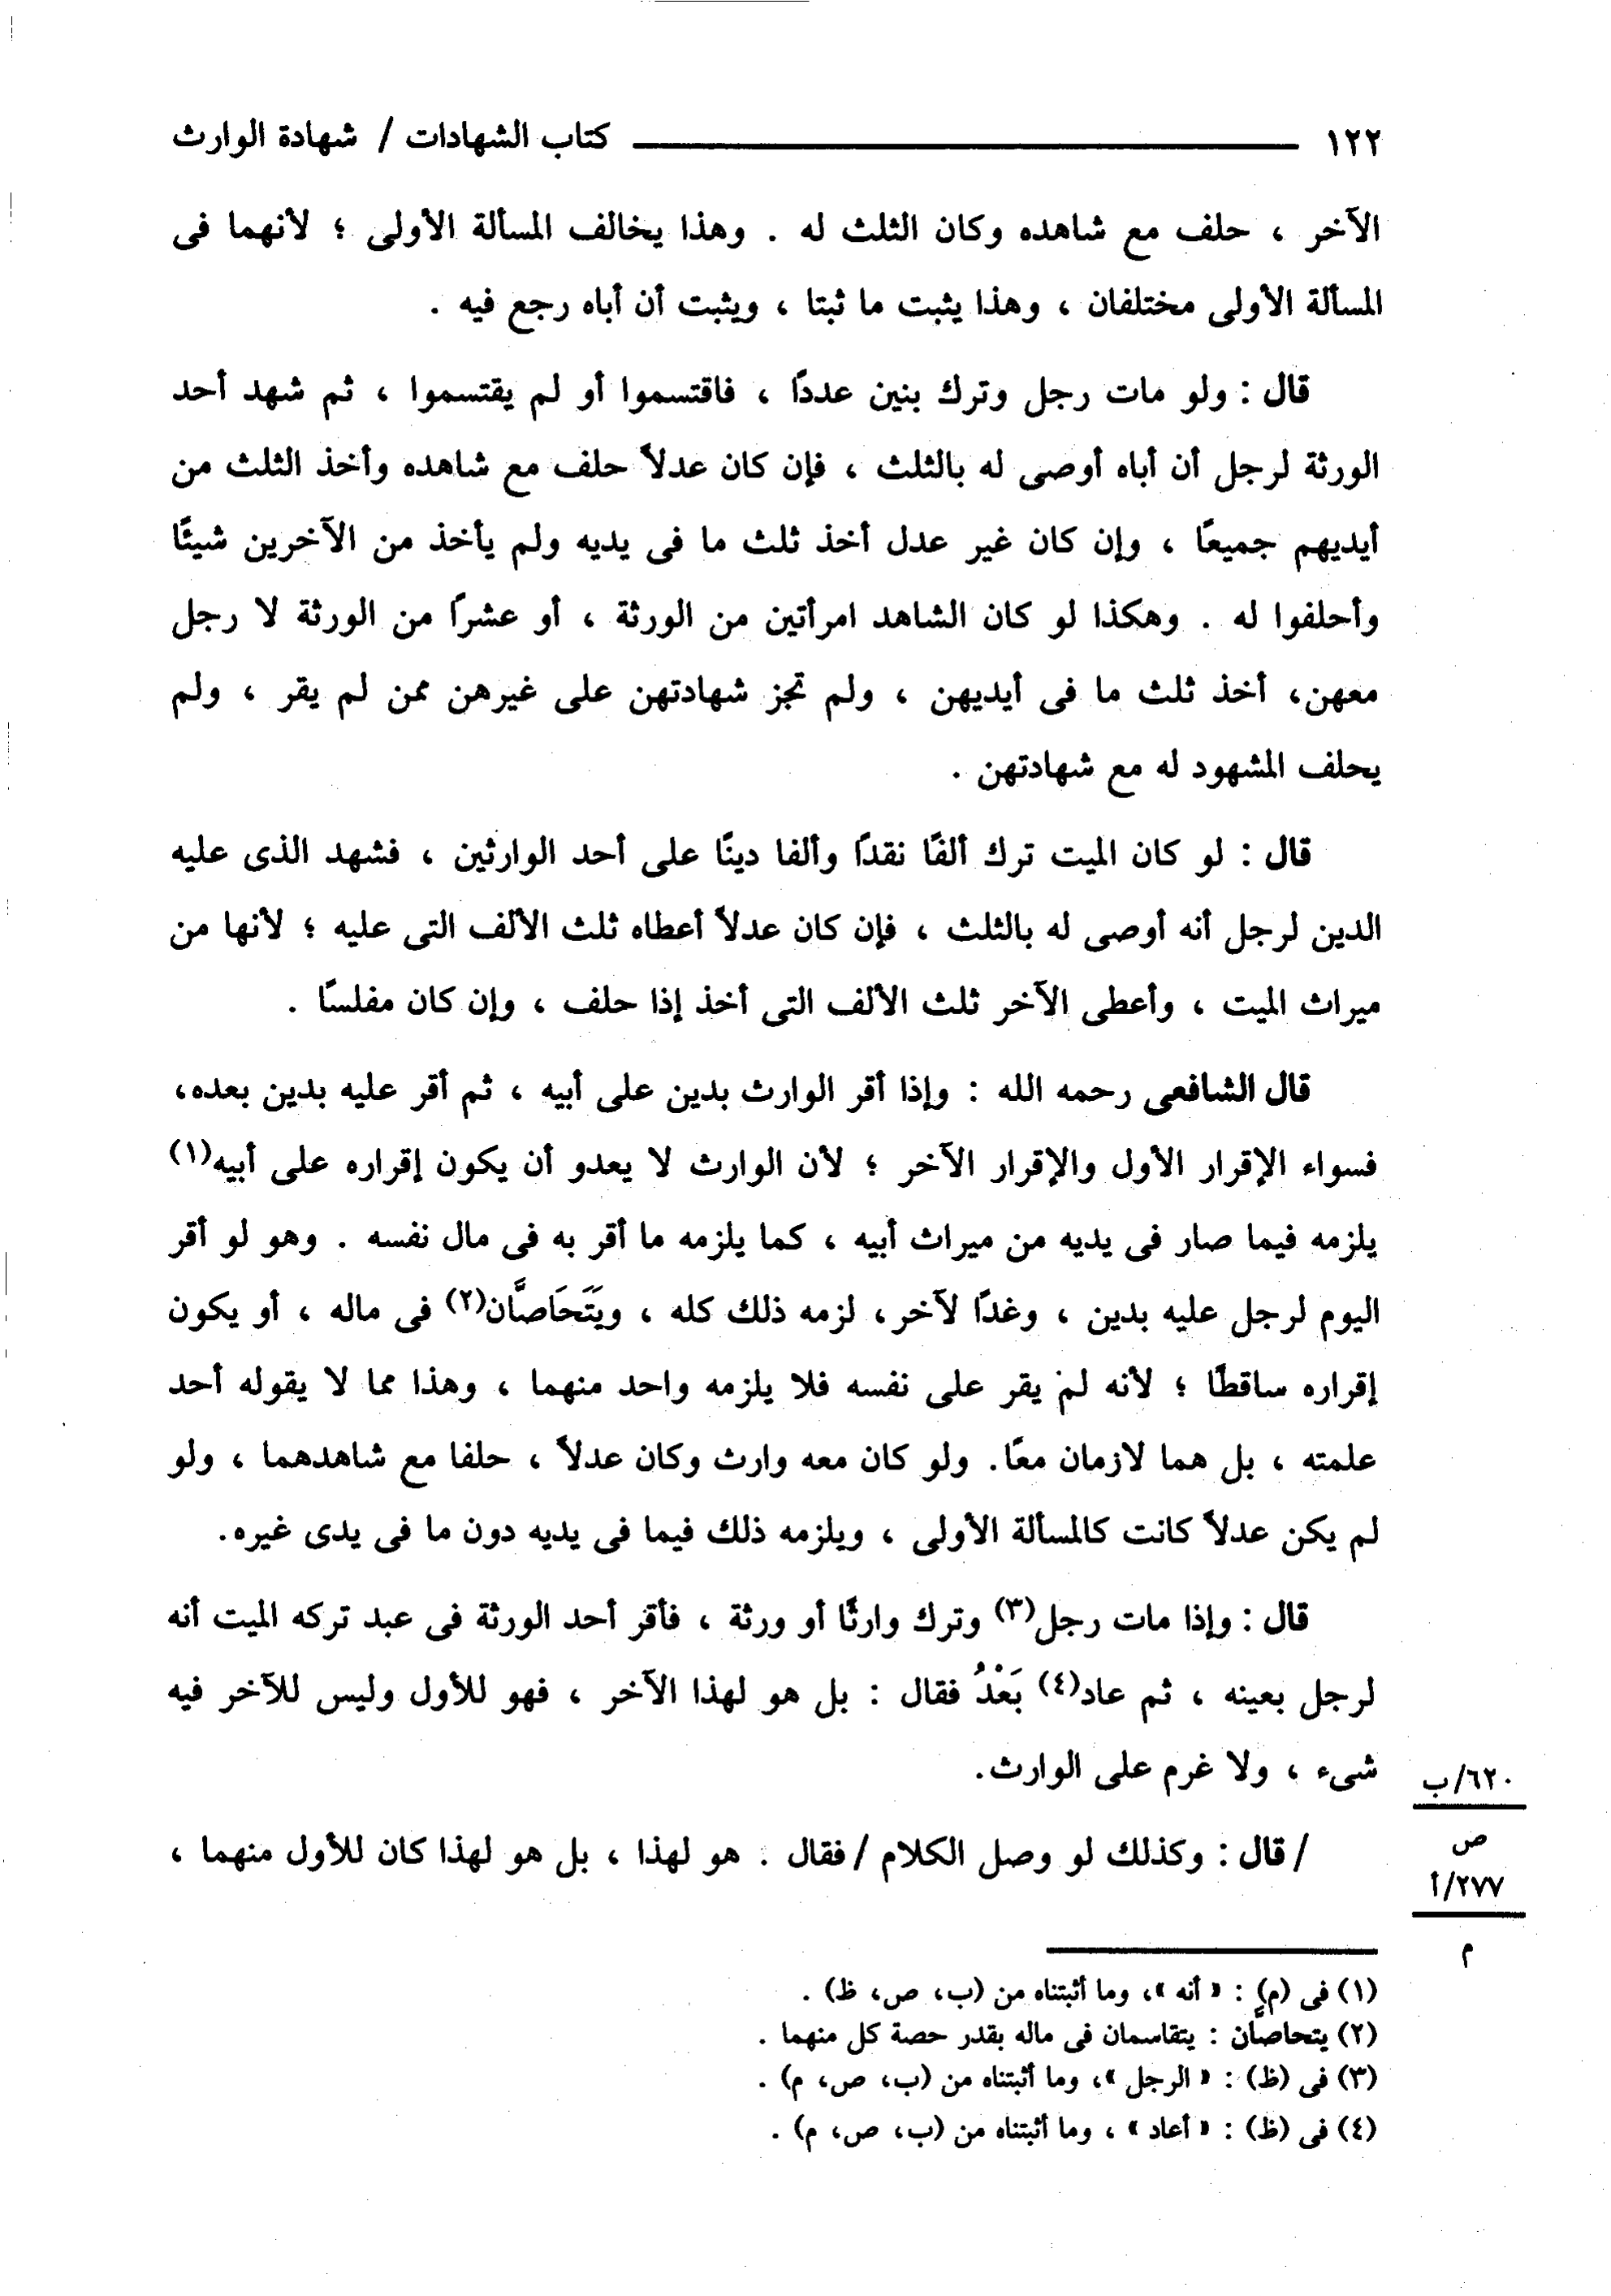 ١٢٢ كتاب الشهادات / شهادة الوارث
الآخر ، حلف مع شاهده وكان الثلث له . وهذا يخالف المسألة الأولى ؛ لأنهما فى
المسألة الأولى مختلفان ، وهذا يثبت ما ثبتا ، ويثبت أن أباه رجع فيه .
قال : ولو مات رجل وترك بنين عددًا ، فاقتسموا أو لم يقتسموا ، ثم شهد أحد
الورثة لرجل أن أباه أوصى له بالثلث ، فإن كان عدلاً حلف مع شاهده وأخذ الثلث من
أيديهم جميعًا ، وإن كان غير عدل أخذ ثلث ما فى يديه ولم يأخذ من الآخرين شيئًا
وأحلفوا له . وهكذا لو كان الشاهد امرأتين من الورثة ، أو عشرًا من الورثة لا رجل
معهن، أخذ ثلث ما فى أيديهن ، ولم تجز شهادتهن على غيرهن ممن لم يقر ، ولم
يحلف المشهود له مع شهادتهن .
قال : لو كان الميت ترك ألفًا نقدًا وألفا دينًا على أحد الوارثين ، فشهد الذى عليه
الدين لرجل أنه أوصى له بالثلث ، فإن كان عدلاً أعطاه ثلث الألف التى عليه ؛ لأنها من
ميراث الميت ، وأعطى الآخر ثلث الألف التى أخذ إذا حلف ، وإن كان مفلسًا .
قال الشافعى رحمه الله : وإذا أقر الوارث بدين على أبيه ، ثم أقر عليه بدين بعده،
فسواء الإقرار الأول والإقرار الآخر ؛ لأن الوارث لا يعدو أن يكون إقراره على أبيه(١)
يلزمه فيما صار فى يديه من ميراث أبيه ، كما يلزمه ما أقر به فى مال نفسه . وهو لو أقر
اليوم لرجل عليه بدين ، وغدًا لآخر، لزمه ذلك كله ، ويَتَحَاصَّان(٢) فى ماله ، أو يكون
إقراره ساقطًا ؛ لأنه لم يقر على نفسه فلا يلزمه واحد منهما ، وهذا مما لا يقوله أحد
علمته ، بل هما لازمان معًا. ولو كان معه وارث وكان عدلاً ، حلفا مع شاهدهما ، ولو
لم يكن عدلاً كانت كالمسألة الأولى ، ويلزمه ذلك فيما فى يديه دون ما فى يدى غيره.
قال : وإذا مات رجل(٣) وترك وارثًا أو ورثة ، فأقر أحد الورثة فى عبد تركه الميت أنه
لرجل بعينه ، ثم عاد(٤) بَعْدُ فقال : بل هو لهذا الآخر ، فهو للأول وليس للآخر فيه
شىء ، ولا غرم على الوارث.
٦٢٠/ب
ص
/ قال : وكذلك لو وصل الكلام / فقال : هو لهذا ، بل هو لهذا كان للأول منهما ،
٢٧٧/أ
م
(١) فى (م) : « أنه »، وما أثبتناه من (ب، ص، ظ) .
(٢) يتحاصان : يتقاسمان فى ماله بقدر حصة كل منهما .
(٣) فى (ظ) : « الرجل »، وما أثبتناه من (ب، ص، م) .
(٤) فى (ظ) : « أعاد » ، وما أثبتناه من (ب، ص، م) .